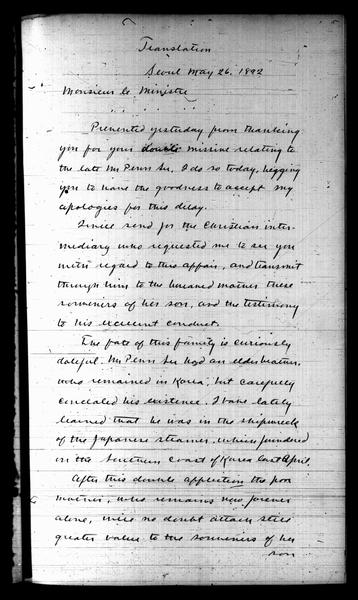 Translation
Seoul May 26. 1892
Monsieur le Ministre
Prevented yesterday from thanking
you for your double missive relating to
the late Mr Penn Su, I do so today, begging
you to have the goodness to accept my
apologies for this delay.
I will send for the Christian inter-
mediary who requested me to see you
with regard to this affair, and transmit
through him to the bereaved mother these
souvenirs of her son, and the testimony
to his excellent conduct.
The fate of this family is curiously
doleful. Mr Penn Su had an elder brother,
who remained in Korea, but carefully
concealed his existence. I have lately
learned that he was in the shipwreck
of the Japanese steamer, which foundered
on the Southern Coast of Korea last April.
After this double affliction the poor
mother, who remains now forever
alone, will no doubt attach still
greater value to the souvenirs of her
son